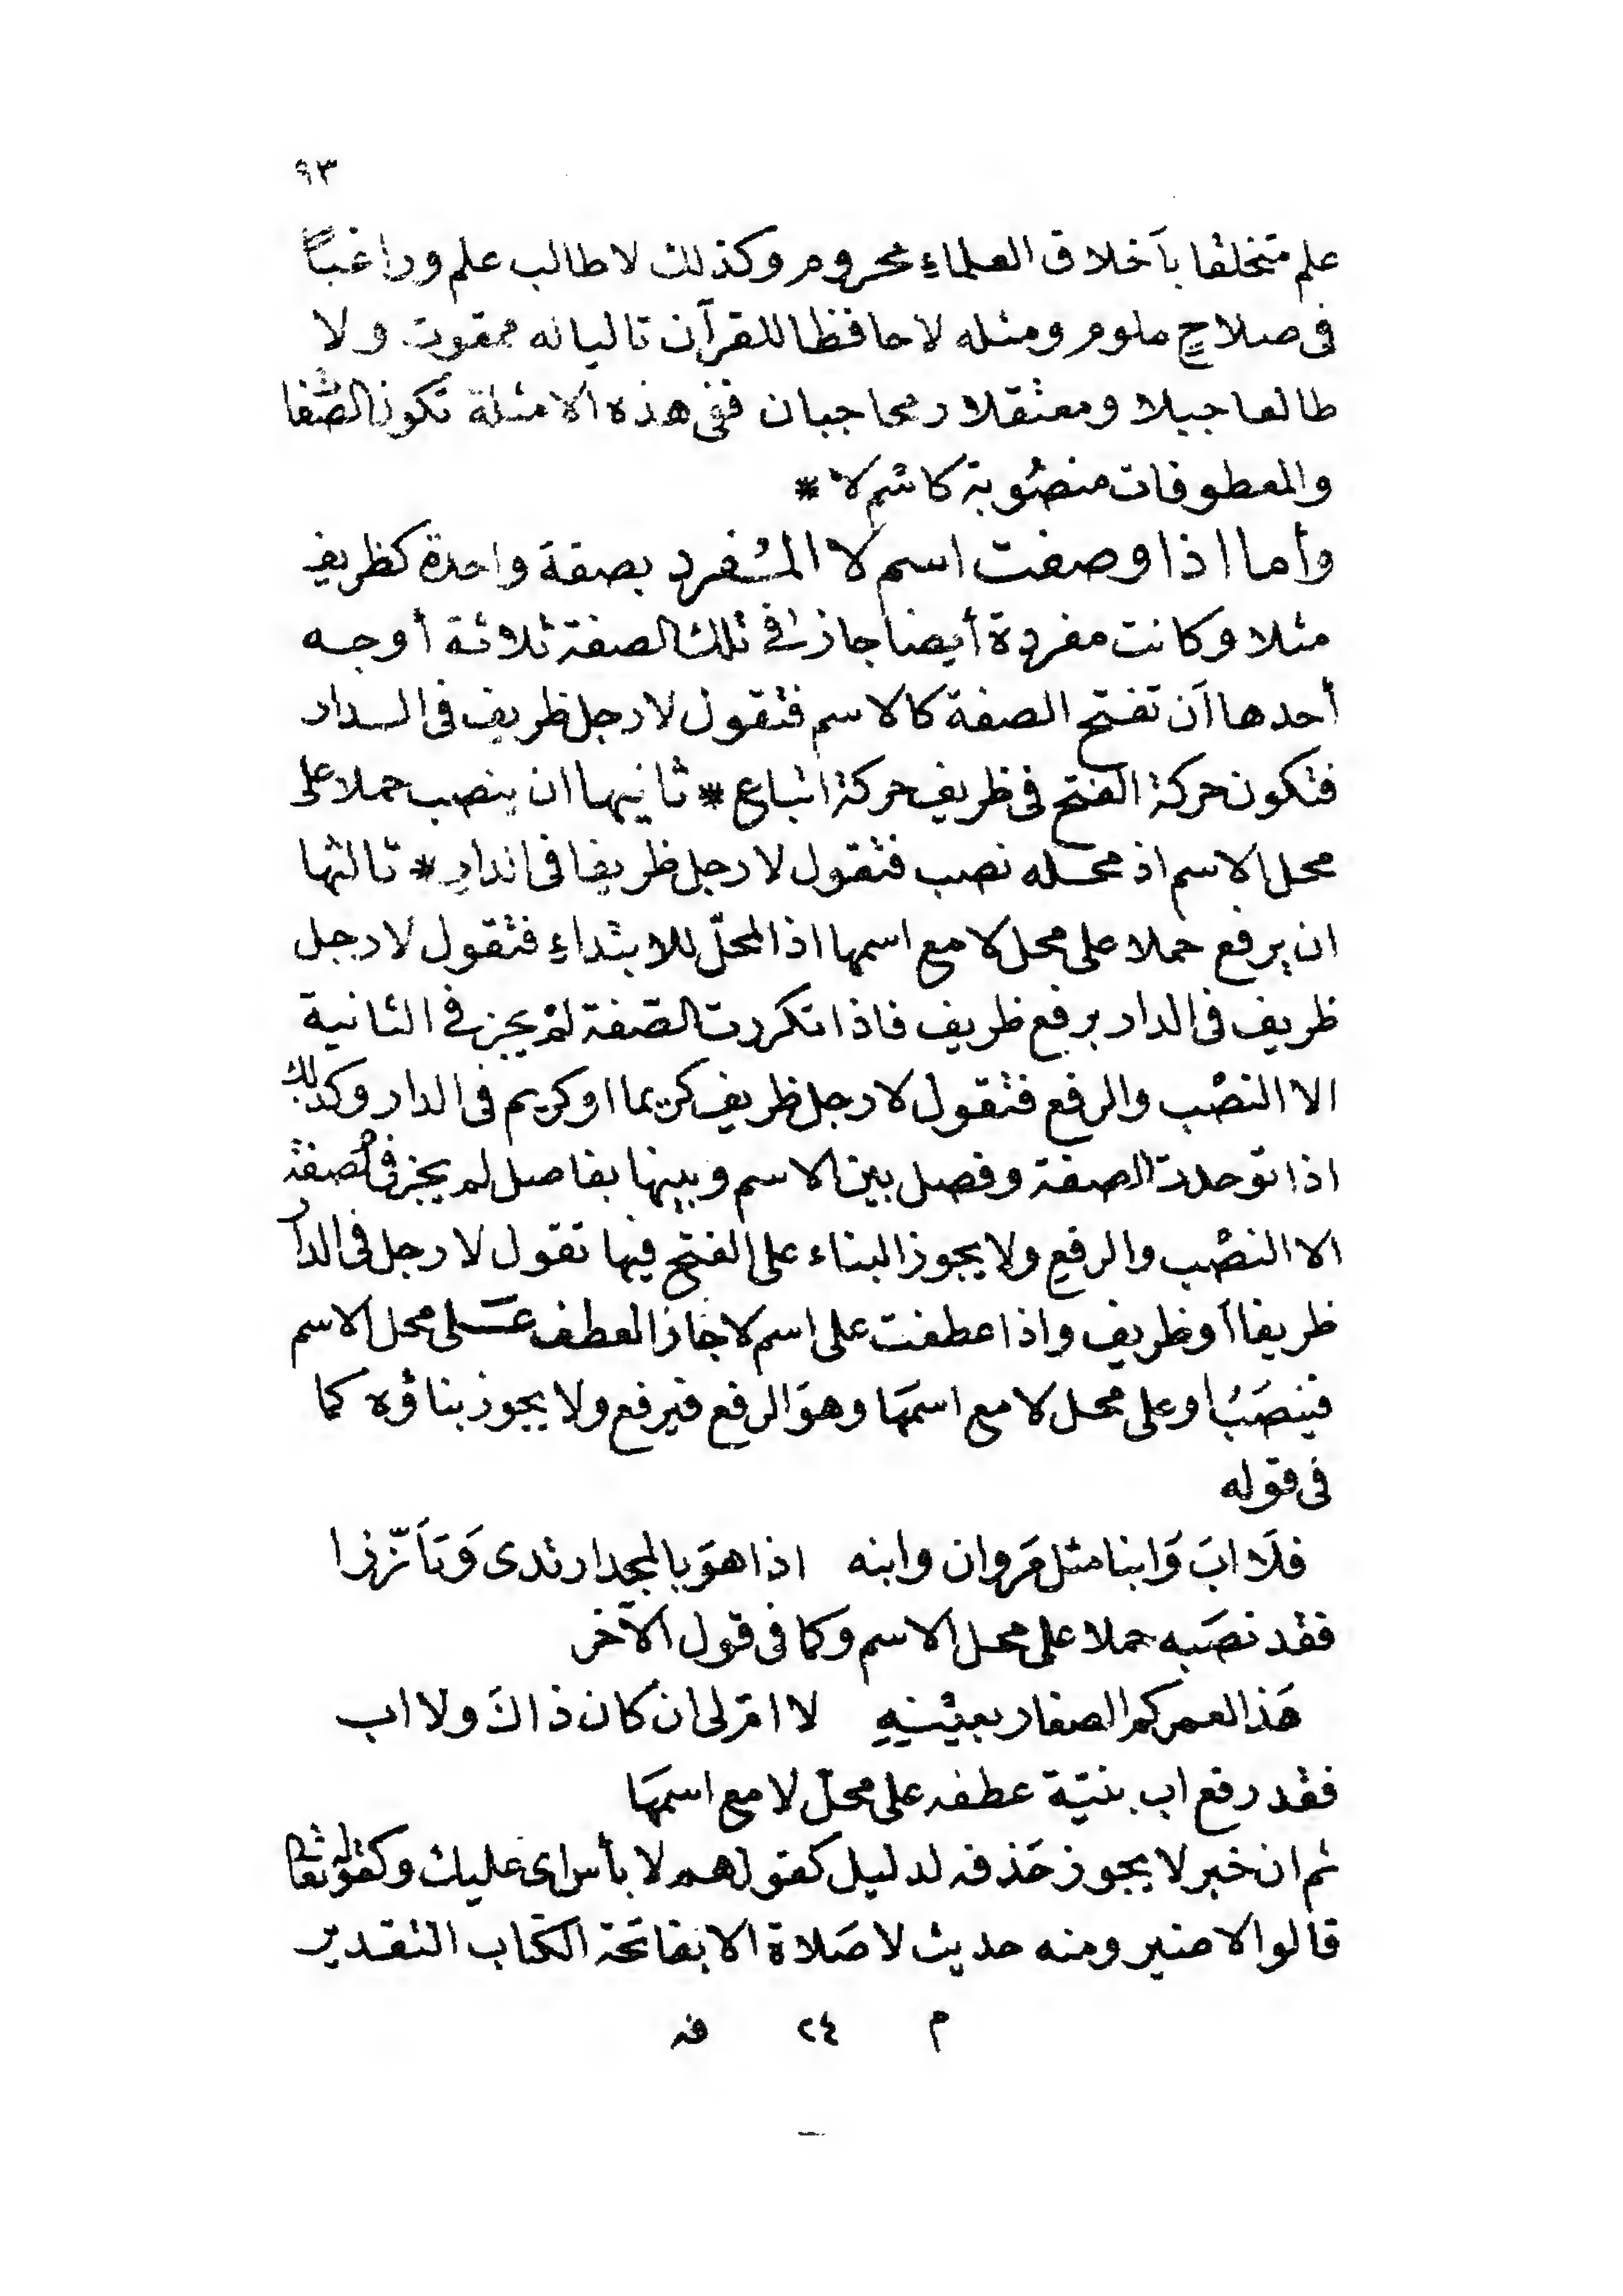 ٩٣
علم متخلقا بأخلاق العلماء محروم وكذلك لا طالب علم وراغبًا
فى صلاحٍ ملوم ومثله لا حافظا للقرآن تاليا له ممقوت ولا
طالعا جبلا ومعتقلا رمحا جبان ففى هذه الامثلة تكون الصّفا
والمعطوفات منصُوبة كاسْم لا *
وأما اذا وصفت اسم لا المُفرد بصفة واحدة كظريف
مثلا وكانت مفردة أيضا جاز فى تلك الصفة ثلاثة أوجه
أحدها أن تفتح الصفة كالاسم فتقول لا رجل ظريف فى الدار
فتكون حركة الفتح فى ظريف حركة اتباع * ثانيها ان ينصب حملا على
محل الاسم اذ محله نصب فتقول لا رجل ظريفا فى الدار * ثالثها
ان يرفع حملا على محل لا مع اسمها اذ المحلّ للابتداءِ فتقول لا رجل
ظريف فى الدار برفع ظريف فاذا تكررت الصّفة لمْ يجز فى الثانية
الا النصْب والرفع فتقول لا رجل ظريف كريما او كريم فى الدار وكذلك
اذا توحدت الصفة وفصل بين الاسم وبينها بفاصل لم يجز فى الصفة
الا النصْب والرفع ولا يجوز البناء على الفتح فيها تقول لا رجل فى الدار
ظريفا أو ظريف واذا عطفت على اسم لا جاز العطف عَلى محل الاسم
فينصَبُ او على محل لا مع اسمَها وهوَ الرفع فيرفع ولا يجوز بناؤه كما
فى قوله
فلَا ابَ وَابنا مثل مَروان وابنه اذا هوَ بالمجد ارتدى وَتَأَزّرا
فقد نصَبه حملا على محل الاسم وكما فى قول الآخر
هَذا لعمركم الصغار بعيْنِهِ لا امّ لى ان كان ذاكَ ولا اب
فقد رفع اب بنيّة عطفه على محلّ لا مع اسمهَا
ثم ان خبر لا يجوز حَذفه لدليل كقولهم لا بأس اى عليك وكقوله تعالى
قالوا لا ضير ومنه حديث لا صَلاة الا بفاتحَة الكتاب التقدير
م ٢٤ فه